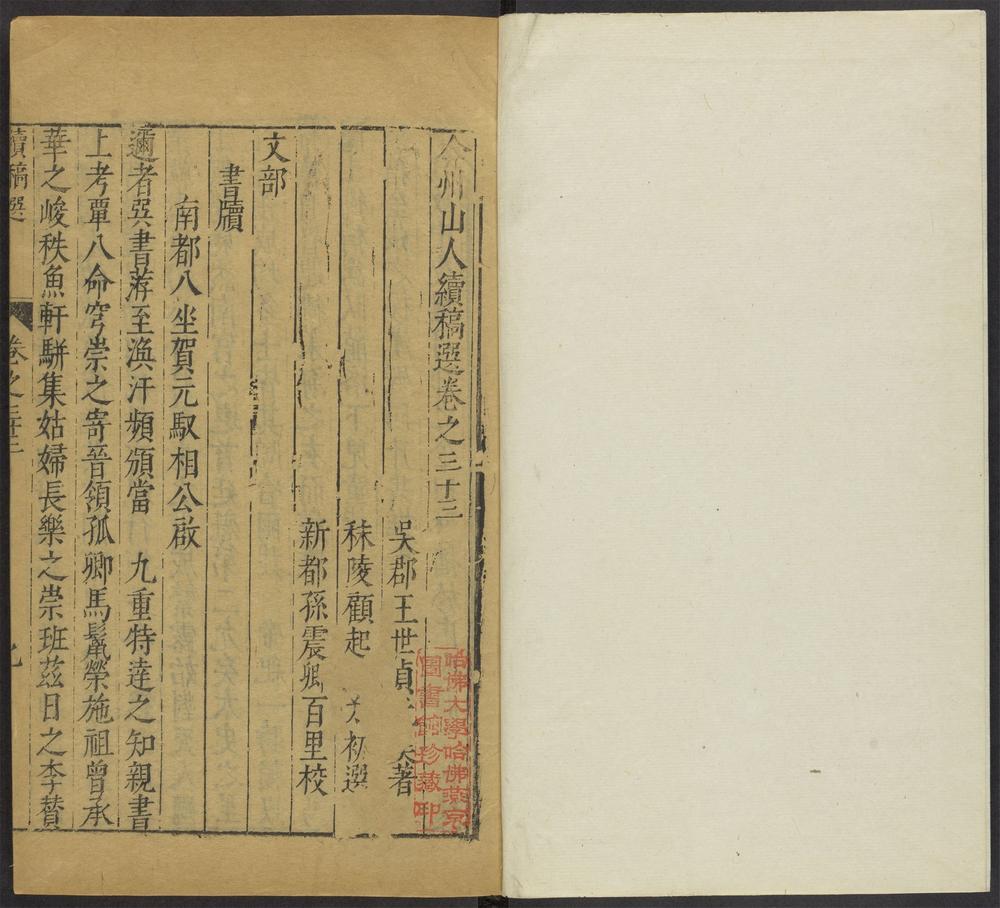 弇州山人續稿選卷之三十三
吳郡王世貞元美著
秣陵顧起元太初選
新都孫震卿百里校
文部
書牘
南都八坐賀元馭相公啟
邇者巽書荐至渙汗頻頒當 九重特達之知親書
上考覃八命穹崇之寄晉領孤卿馬鬣榮施祖曾承
華之峻秩魚軒駢集姑婦長樂之崇班茲日之李贊
續稿選 卷之三十三
哈佛大學哈佛燕京
圖書館珍藏印